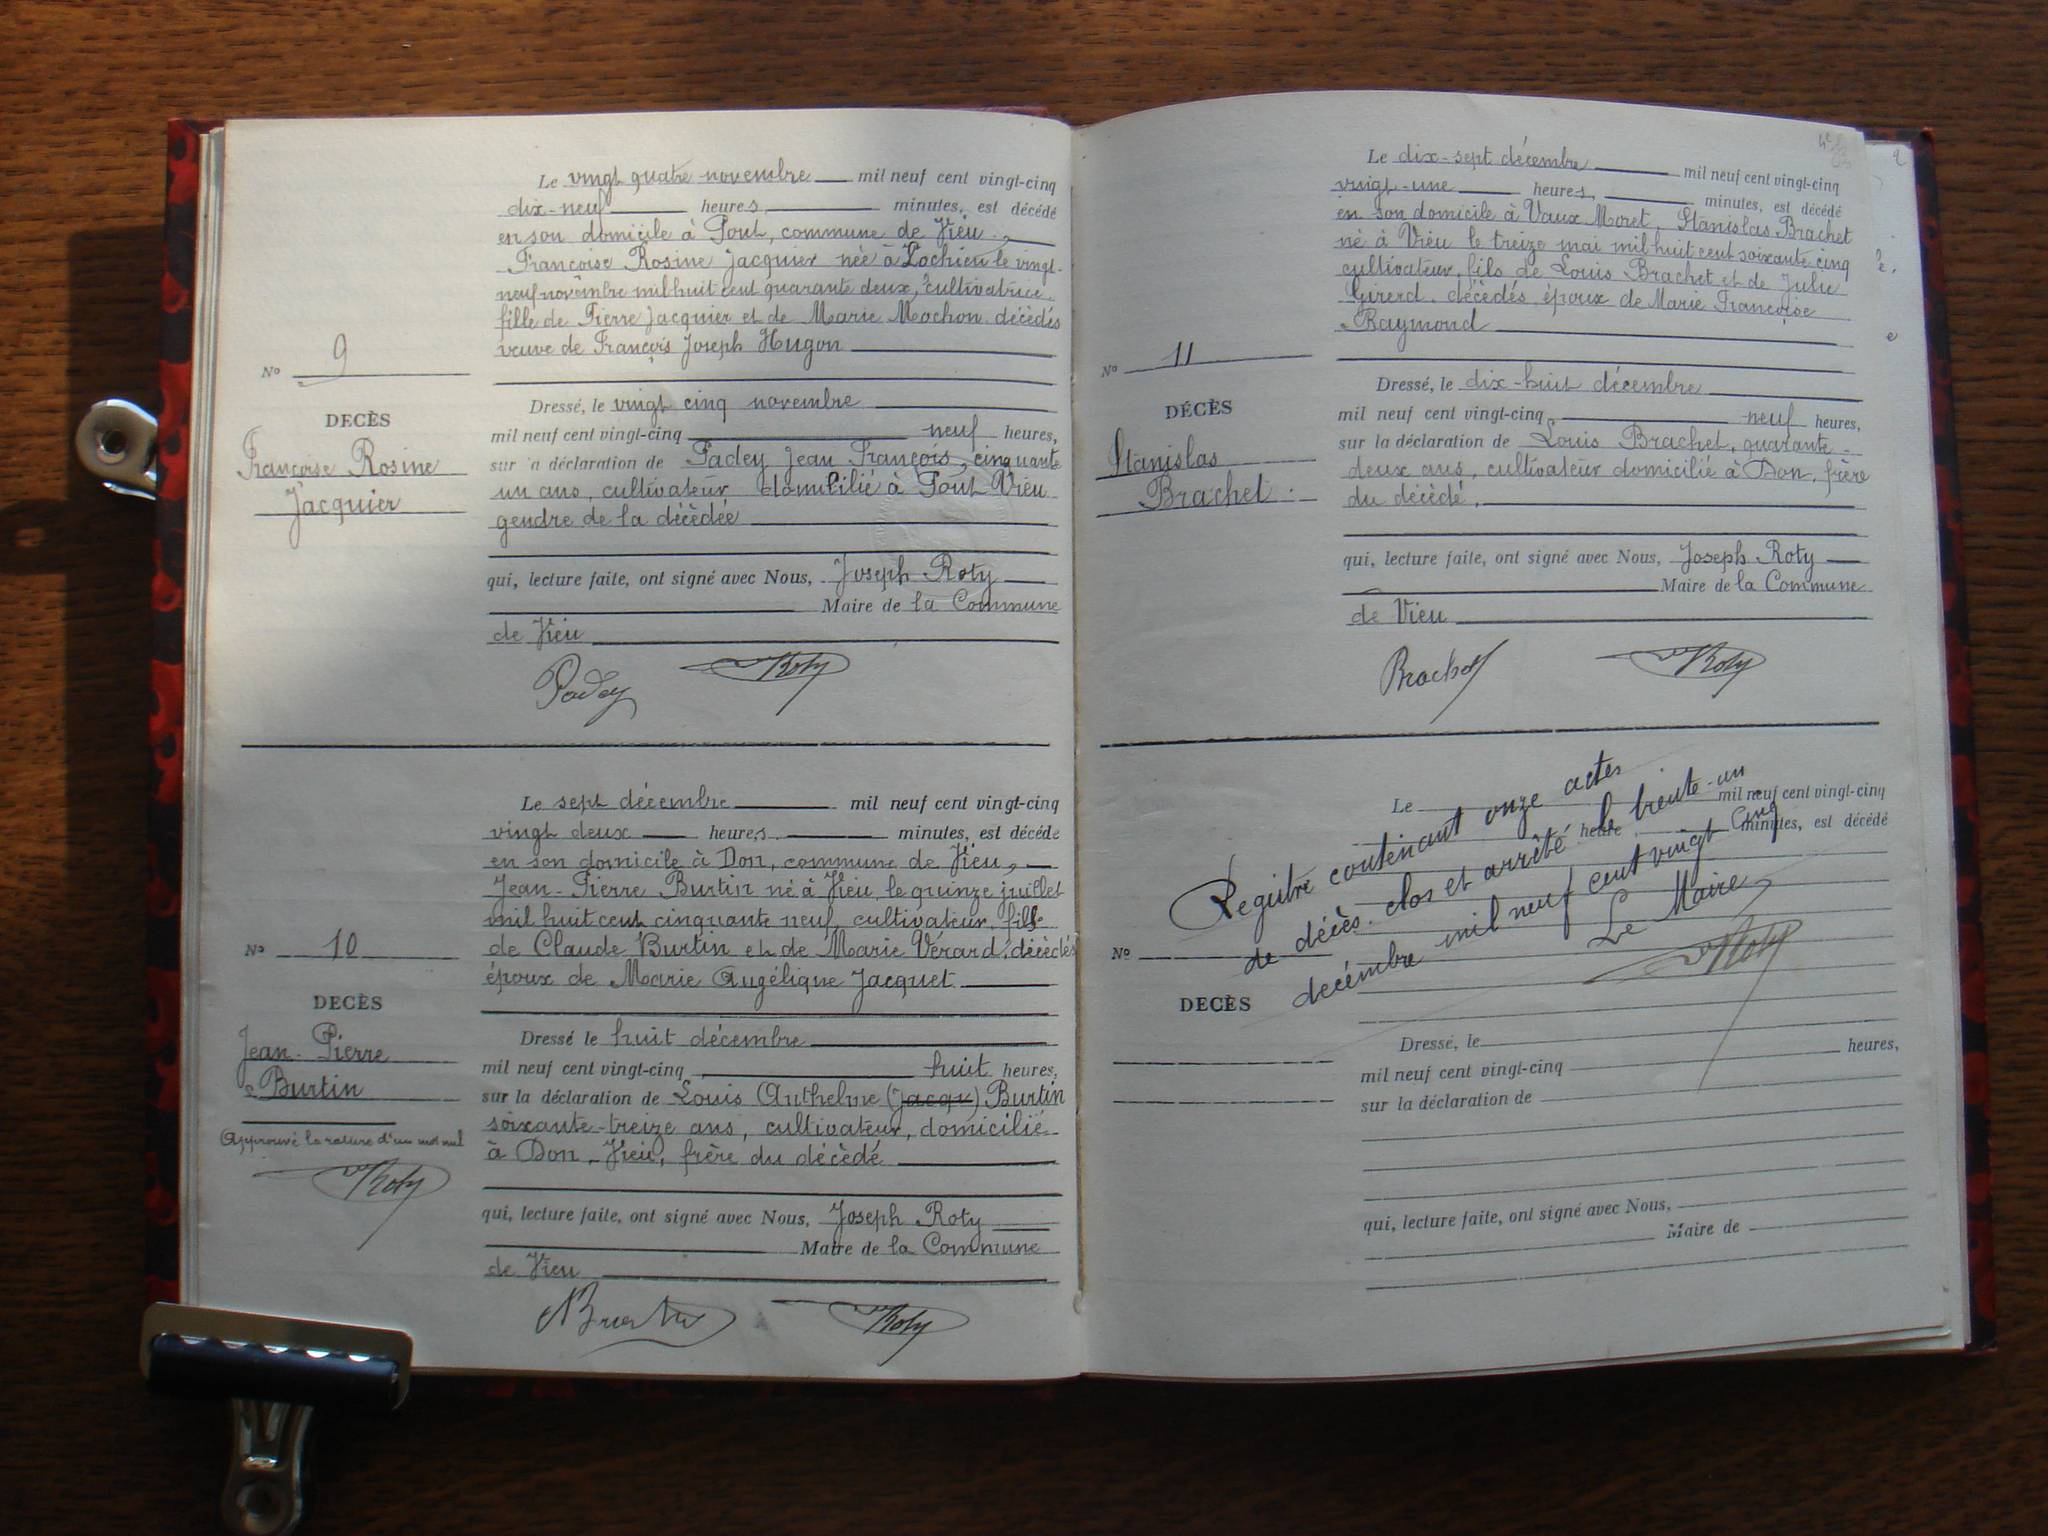 Le vingt quatre novembre mil neuf cent vingt-cinq
dix-neuf heures minutes, est décédé
en son domicile à Pont, commune de Vieu,
Françoise Rosine Jacquier née à Lochieu le vingt-
neuf novembre mil huit cent quarante deux, cultivatrice,
fille de Pierre Jacquier et de Marie Mochon décédés
veuve de François Joseph Hugon
No 9
DECÈS
Françoise Rosine
Jacquier
Dressé, le vingt cinq novembre
mil neuf cent vingt-cinq neuf heures,
sur la déclaration de Padey Jean François, cinquante
un ans, cultivateur domicilié à Pont Vieu
gendre de la décédée
qui, lecture faite, ont signé avec Nous, Joseph Roty
Maire de la Commune
de Vieu
Padey Roty
Le sept décembre mil neuf cent vingt-cinq
vingt deux heures minutes, est décédé
en son domicile à Don, commune de Vieu,
Jean-Pierre Burtin né à Vieu, le quinze juillet
mil huit cent cinquante neuf, cultivateur, fils
de Claude Burtin et de Marie Vérard, décédés
époux de Marie Angélique Jacquet
No 10
DECÈS
Jean-Pierre
Burtin
Approuvé la rature d'un mot nul
Roty
Dressé le huit décembre
mil neuf cent vingt-cinq huit heures,
sur la déclaration de Louis Anthelme (Jacqu) Burtin
soixante-treize ans, cultivateur, domicilié
à Don, Vieu, frère du décédé
qui, lecture faite, ont signé avec Nous, Joseph Roty
Maire de la Commune
de Vieu
Burtin Roty
Le dix-sept décembre mil neuf cent vingt-cinq
vingt-une heures, minutes, est décédé
en son domicile à Vaux Moret, Stanislas Brachet
né à Vieu le treize mai mil huit cent soixante cinq
cultivateur, fils de Louis Brachet et de Julie
Girerd, décédés, époux de Marie Françoise
Raymond
No 11
DÉCÈS
Stanislas
Brachet
Dressé, le dix-huit décembre
mil neuf cent vingt-cinq neuf heures,
sur la déclaration de Louis Brachet, quarante-
deux ans, cultivateur domicilié à Don, frère
du décédé.
qui, lecture faite, ont signé avec Nous, Joseph Roty
Maire de la Commune
de Vieu
Brachet Roty
Le mil neuf cent vingt-cinq
heure minutes, est décédé
Registre contenant onze actes
de décès. clos et arrêté le trente-un
décembre mil neuf cent vingt cinq
Le Maire,
Roty
No
DECÈS
Dressé, le
mil neuf cent vingt-cinq heures,
sur la déclaration de
qui, lecture faite, ont signé avec Nous,
Maire de